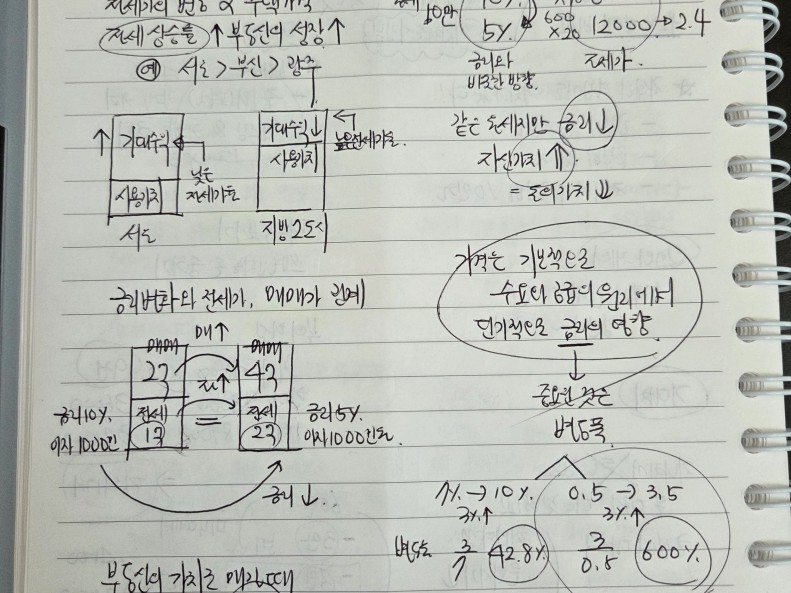 전세 상승률 ↑ 부동산의 성장 ↑
예 서울 > 부산 > 광주
기대수익
사용가치
서울
낮은
전세가율
기대수익↓
사용가치
지방 2도시
높은 전세가율
금리변화와 전세가, 매매가 관계
매매
2억
전세
1억
매↑
전↑
=
매매
4억
전세
2억
금리 10%
이자 1000만
금리 5%
이자 1000만
금리↓
부동산의 가치를 매길때
10%
5%
금리와
비슷한 방향
600
×20
12000 → 2.4
전세가
같은 전세지만 금리↓
자산가치 ↑
= 돈의가치 ↓
가격은 기본적으로
수요와 공급의 원리에서
단기적으로 금리의 영향
중요한 것은
변동폭
7% → 10%
3%↑
변동률 3/7 42.8%
0.5 → 3.5
3%↑
3/0.5 600%